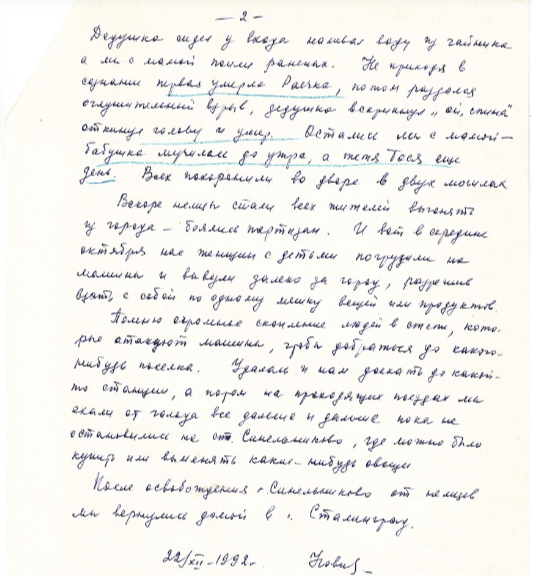 — 2 —
Дедушка сидел у входа наливал воду из чайника
а мы с мамой поили раненых. Не приходя в
сознание первая умерла Раечка, потом раздался
оглушительный взрыв, дедушка вскрикнул „ой, спина"
откинул голову и умер. Остались мы с мамой —
бабушка мучилась до утра, а тетя Тося еще
день. Всех похоронили во дворе в двух могилах
Вскоре немцы стали всех жителей выгонять
из города – боялись партизан. И вот в середине
октября нас женщин с детьми погрузили на
машины и вывезли далеко за город, разрешив
взять с собой по одному мешку вещей или продуктов.
Помню огромное скопление людей в степи, кото-
рые атакуют машины, чтобы добраться до какого-
нибудь поселка. Удалось и нам доехать до какой-
то станции, а потом на проходящих поездах мы
ехали от голода все дальше и дальше пока не
остановились на ст. Синельниково, где можно было
купить или выменять какие-нибудь овощи
После освобождения г. Синельниково от немцев
мы вернулись домой в г. Сталинград.
22/XII–1992г.